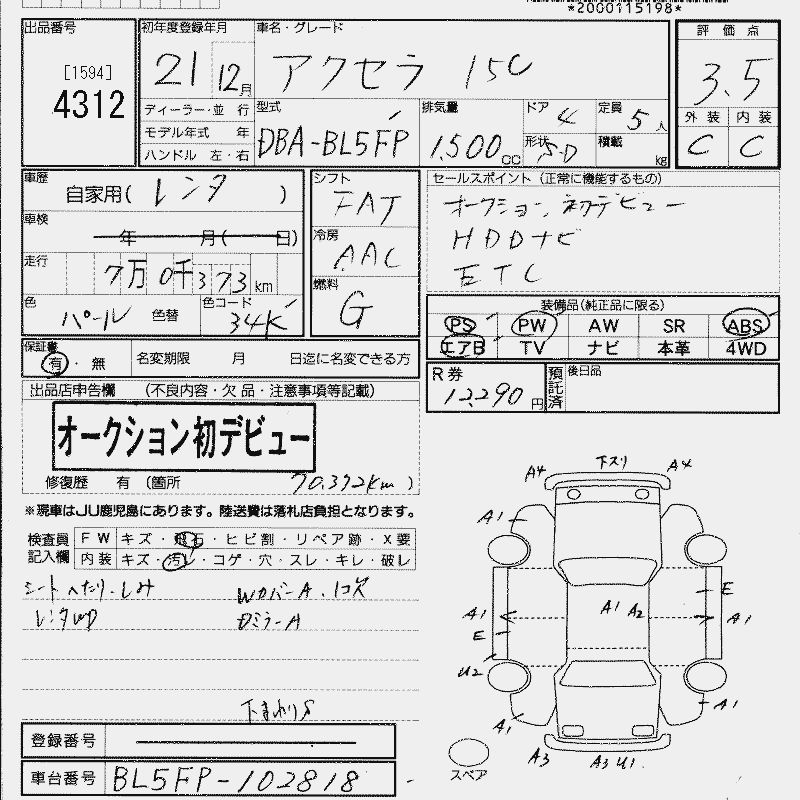 *2000115198*
出品番号
[1594]
4312
初年度登録年月
21 12月
車名・グレード
アクセラ 15C
評価点
3.5
外装 内装
C C
ディーラー・並行
モデル年式 年
ハンドル 左・右
型式
DBA-BL5FP
排気量
1500cc
ドア 4
形状 S-D
定員 5人
積載 kg
車歴
自家用(レンタ)
車検
年 月(日)
走行
7万0千373km
色
パール 色替
色コード
34K
シフト
FAT
冷房
AAC
燃料
G
セールスポイント (正常に機能するもの)
オークション初デビュー
HDDナビ
ETC
装備品(純正品に限る)
PS PW AW SR ABS
エアB TV ナビ 本革 4WD
保証書
有・無
名変期限 月 日迄に名変できる方
R券
12,290円
預託済
後日品
出品店申告欄 (不良内容・欠品・注意事項等記載)
オークション初デビュー
修復歴 有 (箇所 70,392km)
※現車はJU鹿児島にあります。陸送費は落札店負担となります。
検査員記入欄
FW キズ・飛石・ヒビ割・リペア跡・X要
内装 キズ・汚レ・コゲ・穴・スレ・キレ・破レ
シートへたり・しみ WカバーA、1コ欠
DミラーA
下まわりS
登録番号
車台番号 BL5FP-102818
A4 下スリ A4
A1
E
A1 A1 A2 A1
E
U2
A1 A1
A3 A3 U1
スペア